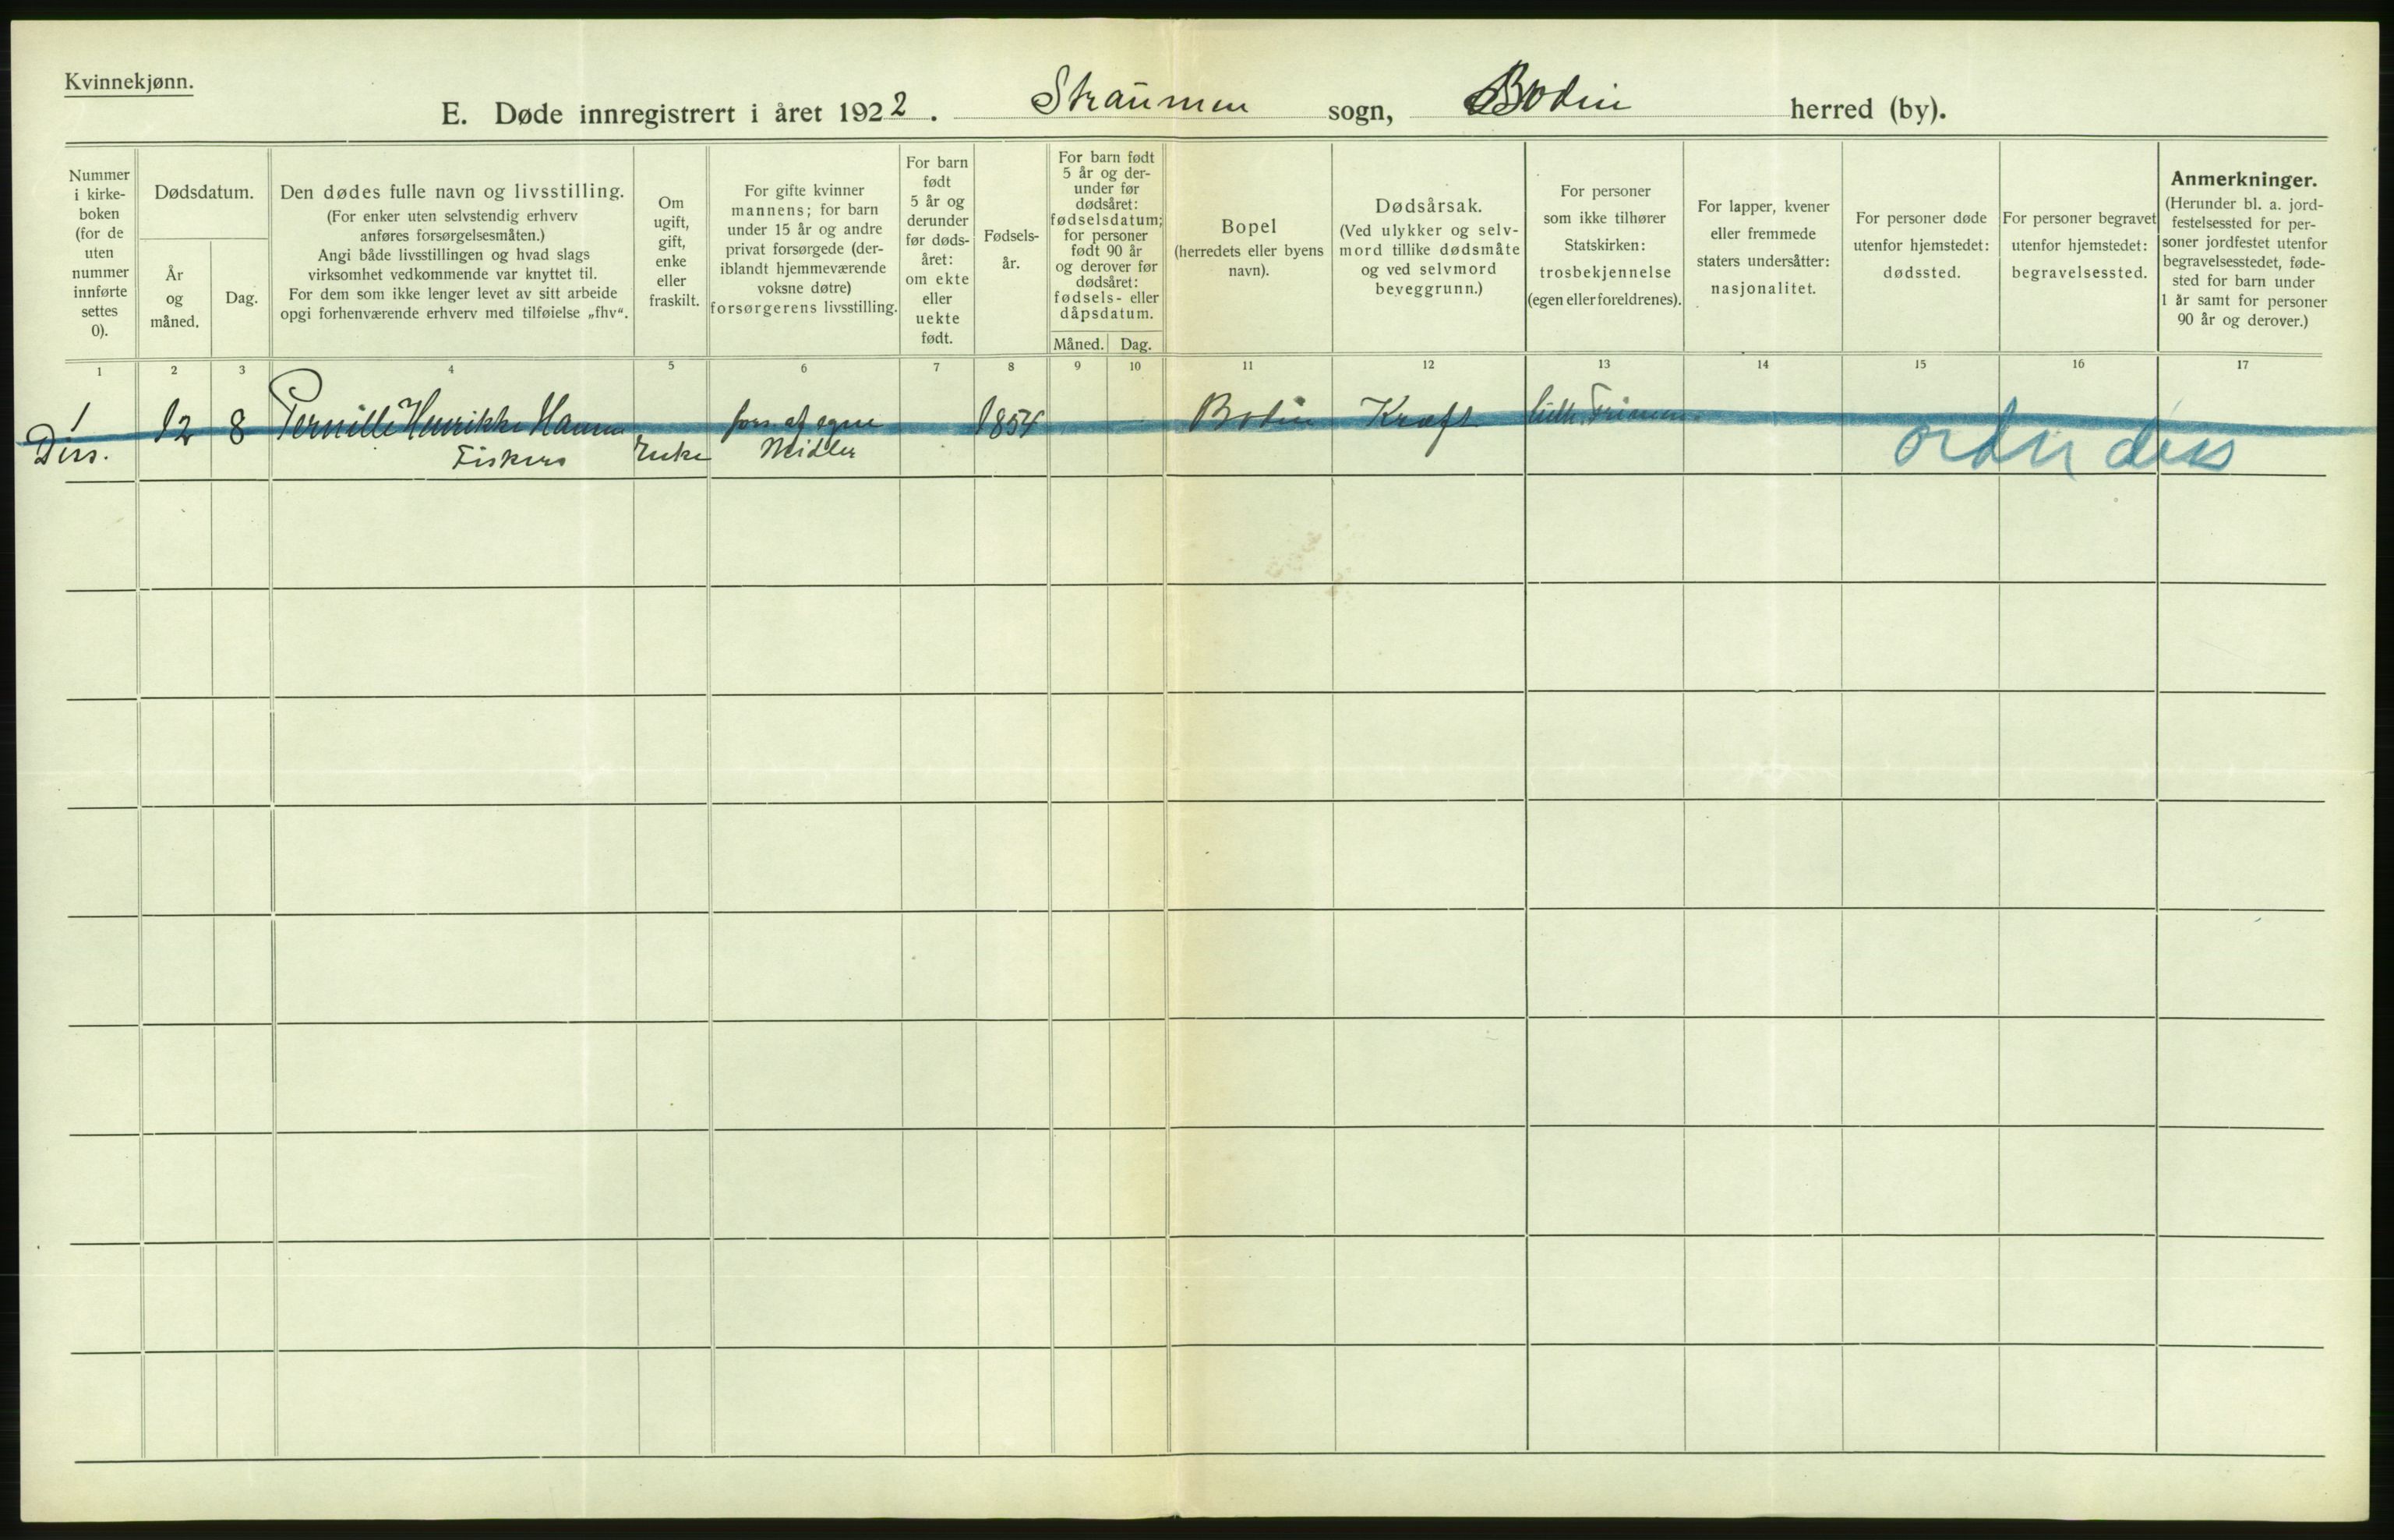 Kvinnekjønn.
E. Døde innregistrert i året 1922. Straumen sogn, Bodin herred (by).
Nummer
i kirke-
boken
(for de
uten
nummer
innførte
settes
0).
Dødsdatum.
År
og
måned.
Dag.
Den dødes fulle navn og livsstilling.
(For enker uten selvstendig erhverv
anføres forsørgelsesmåten.)
Angi både livsstillingen og hvad slags
virksomhet vedkommende var knyttet til.
For dem som ikke lenger levet av sitt arbeide
opgi forhenværende erhverv med tilføielse „fhv“.
Om
ugift,
gift,
enke
eller
fraskilt.
For gifte kvinner
mannens; for barn
under 15 år og andre
privat forsørgede (der-
iblandt hjemmeværende
voksne døtre)
forsørgerens livsstilling.
For barn
født
5 år og
derunder
før døds-
året:
om ekte
eller
uekte
født.
Fødsels-
år.
For barn født
5 år og der-
under før
dødsåret:
fødselsdatum;
for personer
født 90 år
og derover før
dødsåret:
fødsels- eller
dåpsdatum.
Måned. Dag.
Bopel
(herredets eller byens
navn).
Dødsårsak.
(Ved ulykker og selv-
mord tillike dødsmåte
og ved selvmord
beveggrunn.)
For personer
som ikke tilhører
Statskirken:
trosbekjennelse
(egen eller foreldrenes).
For lapper, kvener
eller fremmede
staters undersåtter:
nasjonalitet.
For personer døde
utenfor hjemstedet:
dødssted.
For personer begravet
utenfor hjemstedet:
begravelsessted.
Anmerkninger.
(Herunder bl. a. jord-
festelsessted for per-
soner jordfestet utenfor
begravelsesstedet, føde-
sted for barn under
1 år samt for personer
90 år og derover.)
1 2 3 4 5 6 7 8 9 10 11 12 13 14 15 16 17
1 12 8 Pernille Henrikke Hansen fors. af egne 1854 Bodin Kræft luth. Frimen.
Diss. Fiskers Enke Midler diss